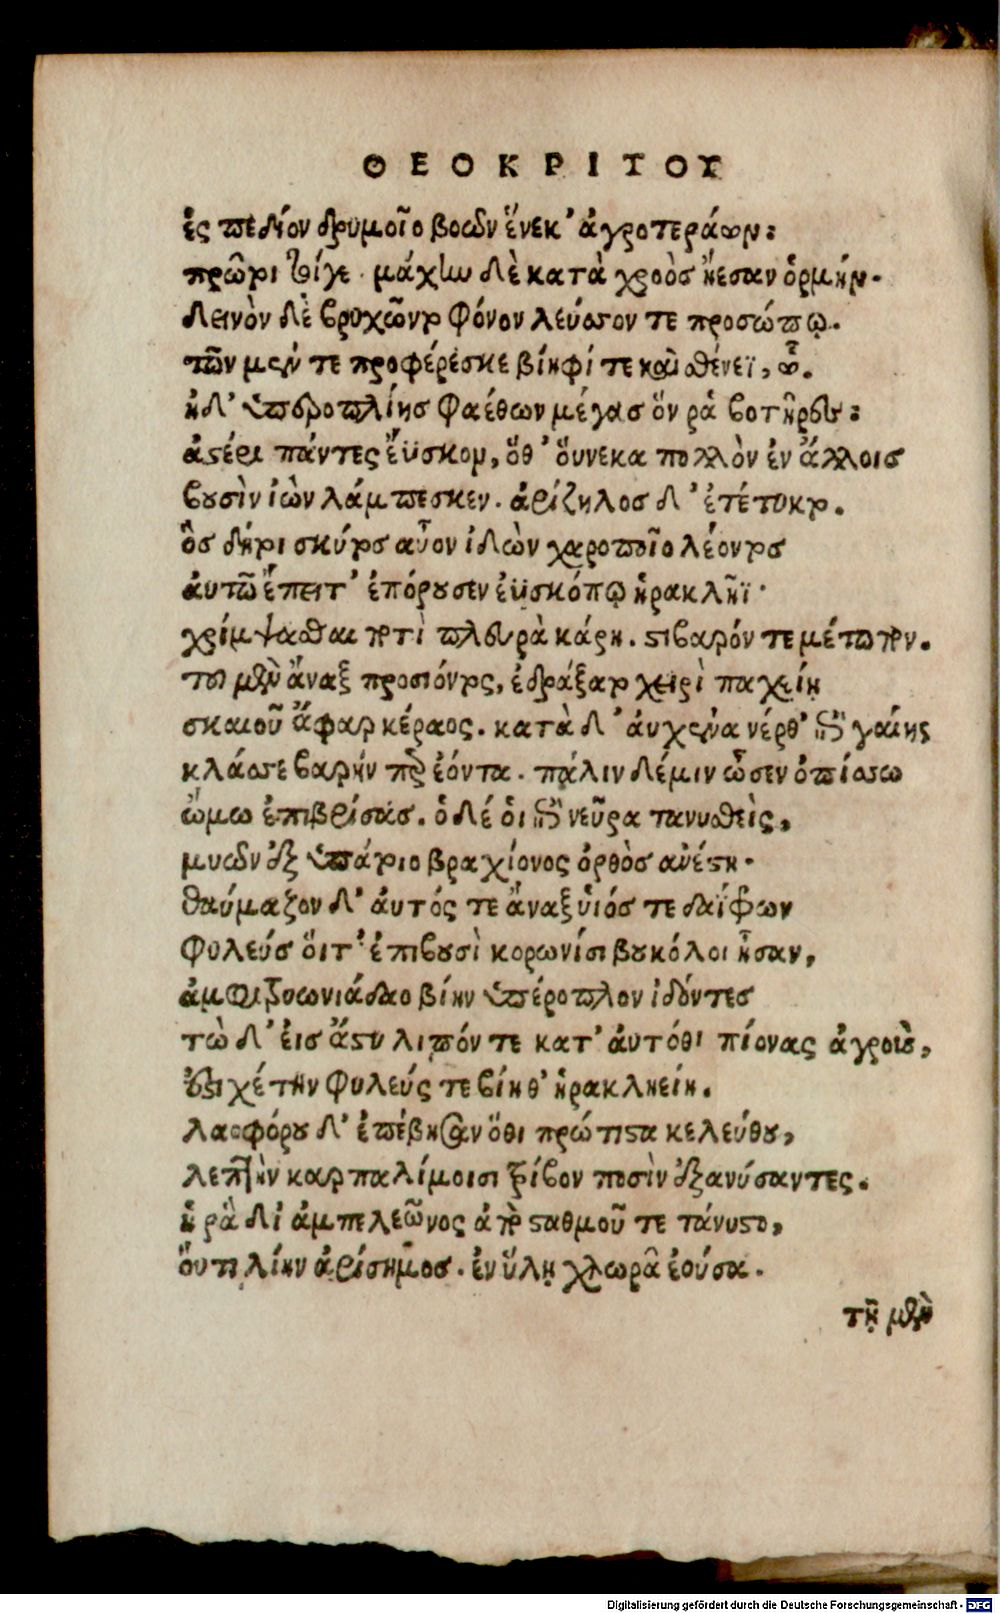 ΘΕΟΚΡΙΤΟΥ
ἐς πεδίον δρυμοῖο βοῶν ἕνεκ' ἀγροτεράων:
πρῶτοι τοίγε. μάχην δὲ κατὰ χροὸς ᾔεσαν ὁρμήν.
δεινὸν δὲ βρυχῶντο φόνον λεύσσον τε προσώπῳ.
τῶν μέν τε προφέρεσκε βίηφί τε καὶ σθένεϊ, ᾧ.
ἠδ' ὑπεροπλίης φαέθων μέγας ὅν ῥα βοτῆρες:
ἀστέρι πάντες ἔϋσκον, ὅθ' οὕνεκα πολλὸν ἐν ἄλλοις
βουσὶν ἰὼν λάμπεσκεν. ἀρίζηλος δ' ἐτέτυκτο.
ὃς δήτοι σκύτος αὖον ἰδὼν χαροποῖο λέοντος
αὐτῷ ἔπειτ' ἐπόρουσεν ἐϋσκόπῳ ἡρακλῆϊ·
χρίμψασθαι ποτὶ πλευρὰ κάρη. στιβαρόν τε μέτωπον.
τοῦ μὲν ἄναξ προσιόντος, ἐδράξατο χειρὶ παχείῃ
σκαιοῦ ἄφαρ κέραος. κατὰ δ' αὐχένα νέρθ' ἐπὶ γαίης
κλάσσε βαρήν περ ἐόντα. πάλιν δέ μιν ὦσεν ὀπίσσω
ὤμω ἐπιβρίσας. ὁ δέ οἱ περὶ νεῦρα τανυσθεὶς,
μυῶν ἐξ ὑπάτοιο βραχίονος ὀρθὸς ἀνέστη.
θαύμαζον δ' αὐτός τε ἄναξ υἱός τε δαΐφρων
φυλεύς οἵ τ' ἐπὶ βουσὶ κορωνίσι βουκόλοι ἦσαν,
ἀμφιτρυωνιάδαο βίην ὑπέροπλον ἰδόντες
τὼ δ' εἰς ἄστυ λιπόντε κατ' αὐτόθι πίονας ἀγροὺς,
ἐστιχέτην φυλεύς τε βίη θ' ἡρακληείη.
λαοφόρου δ' ἐπέβησαν ὅθι πρώτιστα κελεύθου,
λεπτὴν καρπαλίμοισι τρίβον ποσὶν ἐξανύσαντες.
ἥ ῥα δι' ἀμπελεῶνος ἀπὸ σταθμοῦ τε τάνυστο,
οὔτι λίην ἀρίσημος. ἐν ὕλῃ χλωρᾷ ἐούσᾳ.
τῇ μὲν
Digitalisierung gefördert durch die Deutsche Forschungsgemeinschaft - DFG